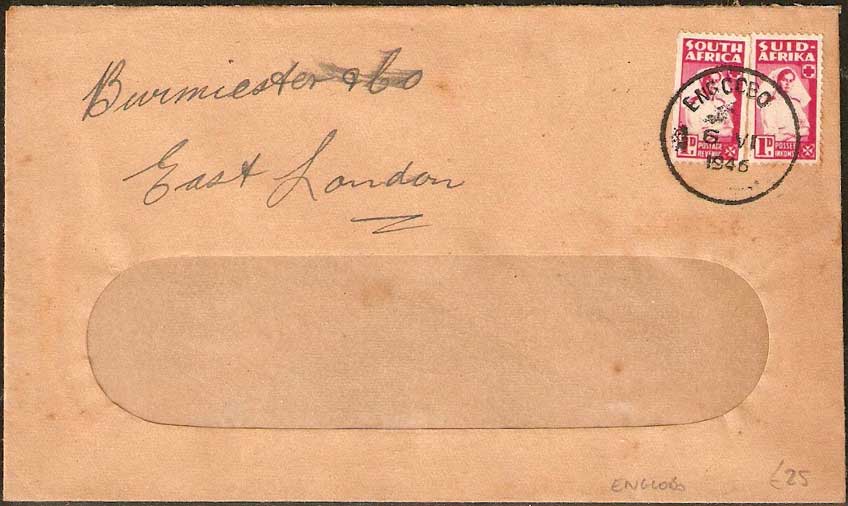 SOUTH AFRICA
SUID-AFRIKA
1D POSTAGE REVENUE
1D POSSEËL INKOMSTE
ENGCOBO
6 VI
1946
Burmiester & Co
East London
ENGCOBO
£25